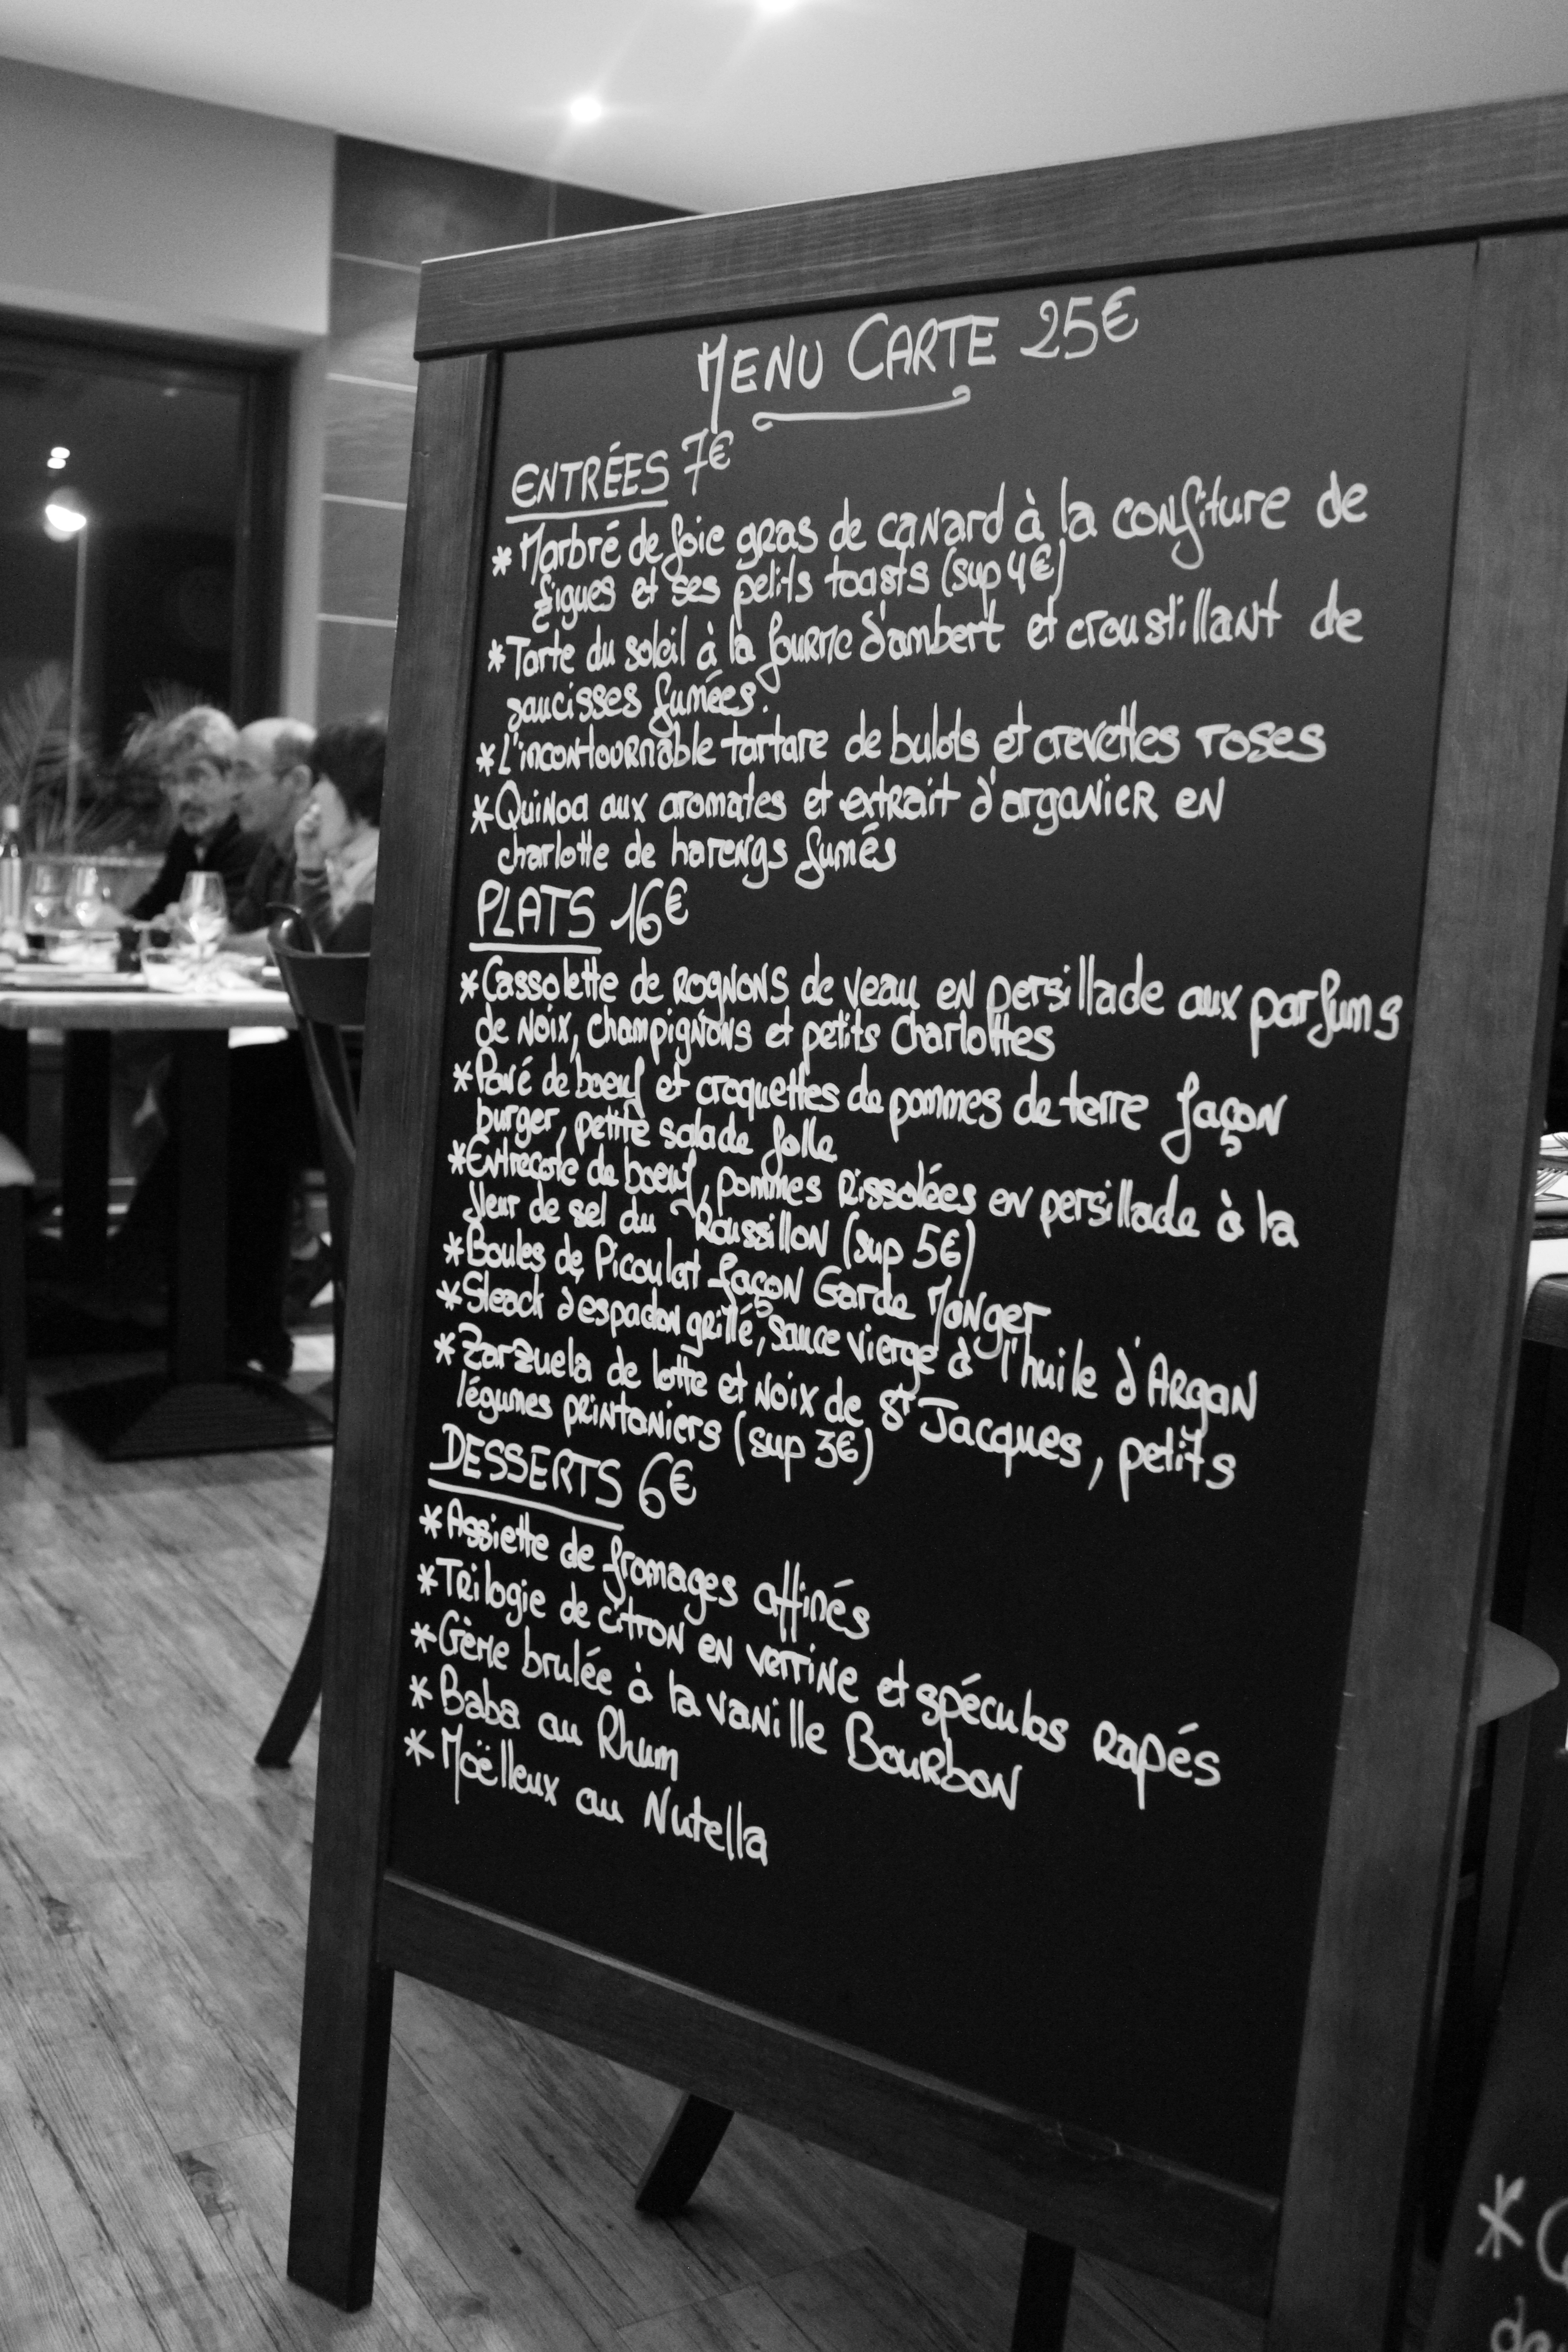 MENU CARTE 25€
ENTRÉES 7€
* Marbré de foie gras de canard à la confiture de
figues et ses petits toasts (sup 4€)
* Tarte du soleil à la fourme d'ambert et croustillant de
saucisses fumées.
* L'incontournable tartare de bulots et crevettes roses
* Quinoa aux aromates et extrait d'arganier en
charlotte de harengs fumés
PLATS 16€
* Cassolette de rognons de veau en persillade aux parfums
de noix, champignons et petits Charlottes
* Pavé de boeuf et croquettes de pommes de terre façon
burger, petite salade folle
* Entrecote de boeuf, pommes rissolées en persillade à la
fleur de sel du Roussillon (sup 5€)
* Boules de Picoulat façon Garde Manger
* Steack d'espadon grillé, sauce vierge à l'huile d'Argan
* Zarzuela de lotte et noix de St Jacques, petits
légumes printaniers (sup 3€)
DESSERTS 6€
* Assiette de fromages affinés
* Trilogie de citron en verrine et spéculos rapés
* Crème brulée à la vanille Bourbon
* Baba au Rhum
* Moëlleux au Nutella